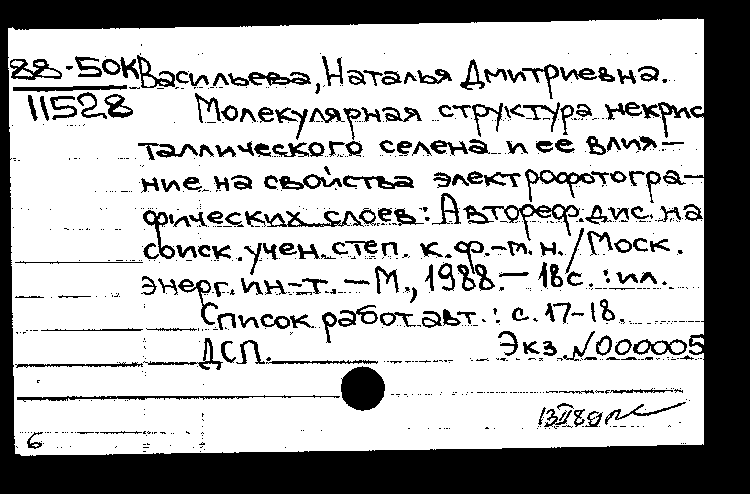 88-50К Васильева, Наталья Дмитриевна.
11528 Молекулярная структура некрис
таллического селена и ее влия-
ние на свойства электрофотогра-
фических слоев: Автореф. дис. на
соиск. учен. степ. к. ф.-м. н. / Моск.
энерг. ин-т. - М., 1988. - 18 с. : ил.
Список работ авт. : с. 17-18.
ДСП. Экз. №000005
13 II 89
6